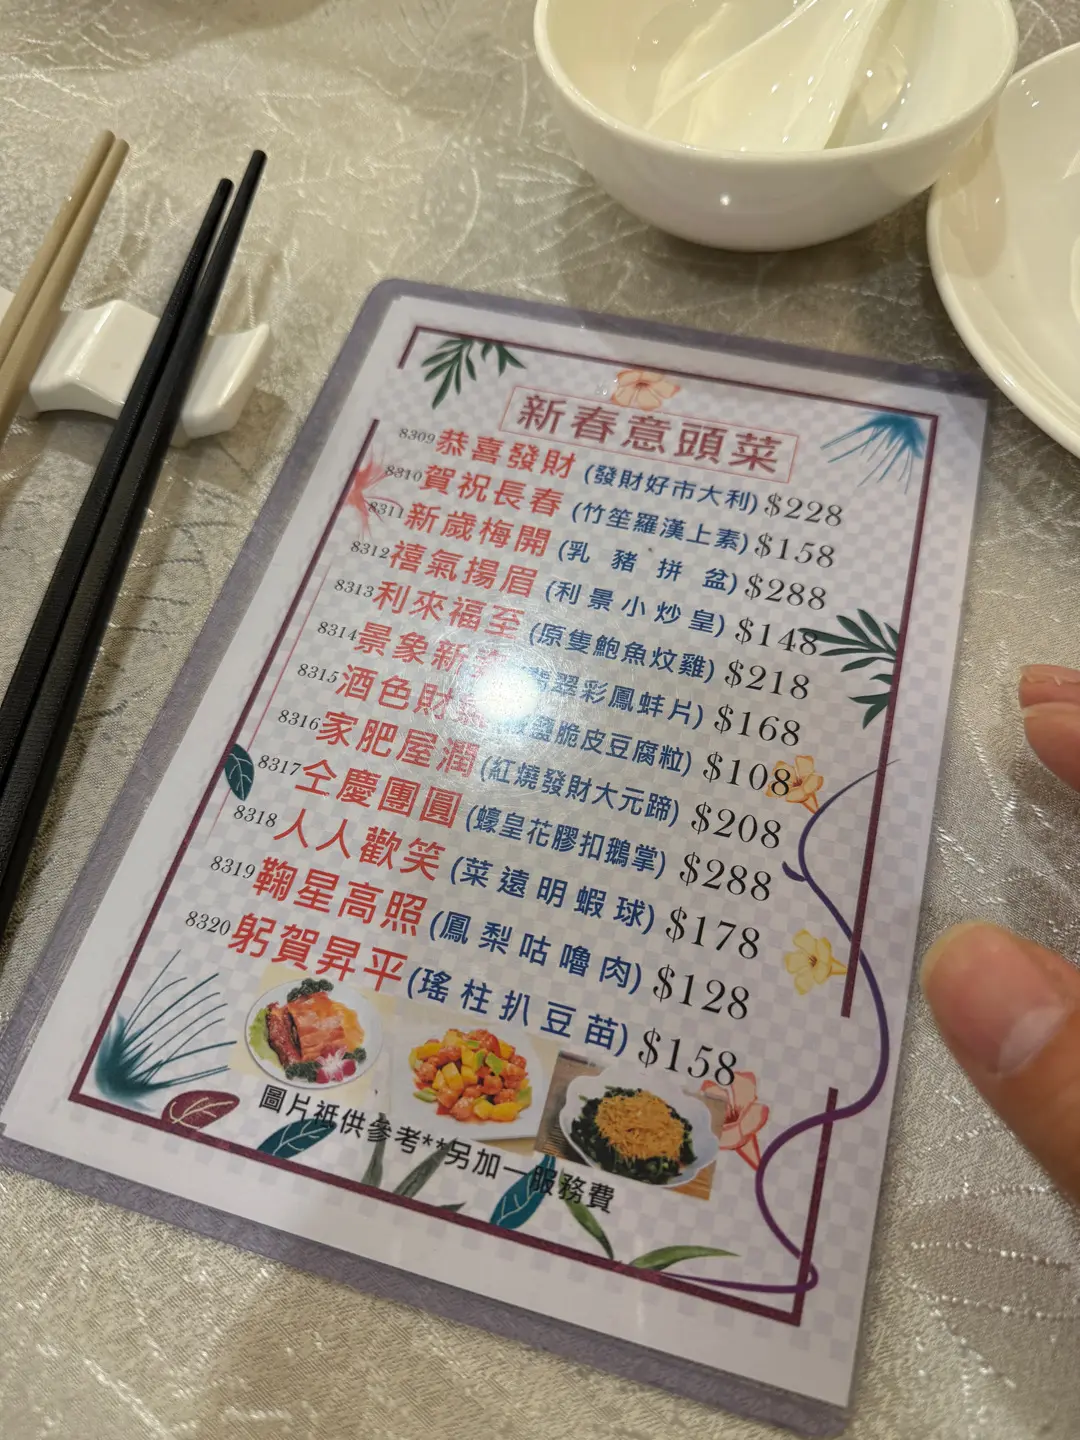 新春意頭菜
8309 恭喜發財 (發財好市大利) $228
8310 賀祝長春 (竹笙羅漢上素) $158
8311 新歲梅開 (乳豬拼盆) $288
8312 禧氣揚眉 (利景小炒皇) $148
8313 利來福至 (原隻鮑魚炆雞) $218
8314 景象新 翠彩鳳蚌片) $168
8315 酒色財 鹽脆皮豆腐粒) $108
8316 家肥屋潤 (紅燒發財大元蹄) $208
8317 仝慶團圓 (蠔皇花膠扣鵝掌) $288
8318 人人歡笑 (菜遠明蝦球) $178
8319 鞠星高照 (鳳梨咕嚕肉) $128
8320 躬賀昇平 (瑤柱扒豆苗) $158
圖片祗供參考**另加一服務費